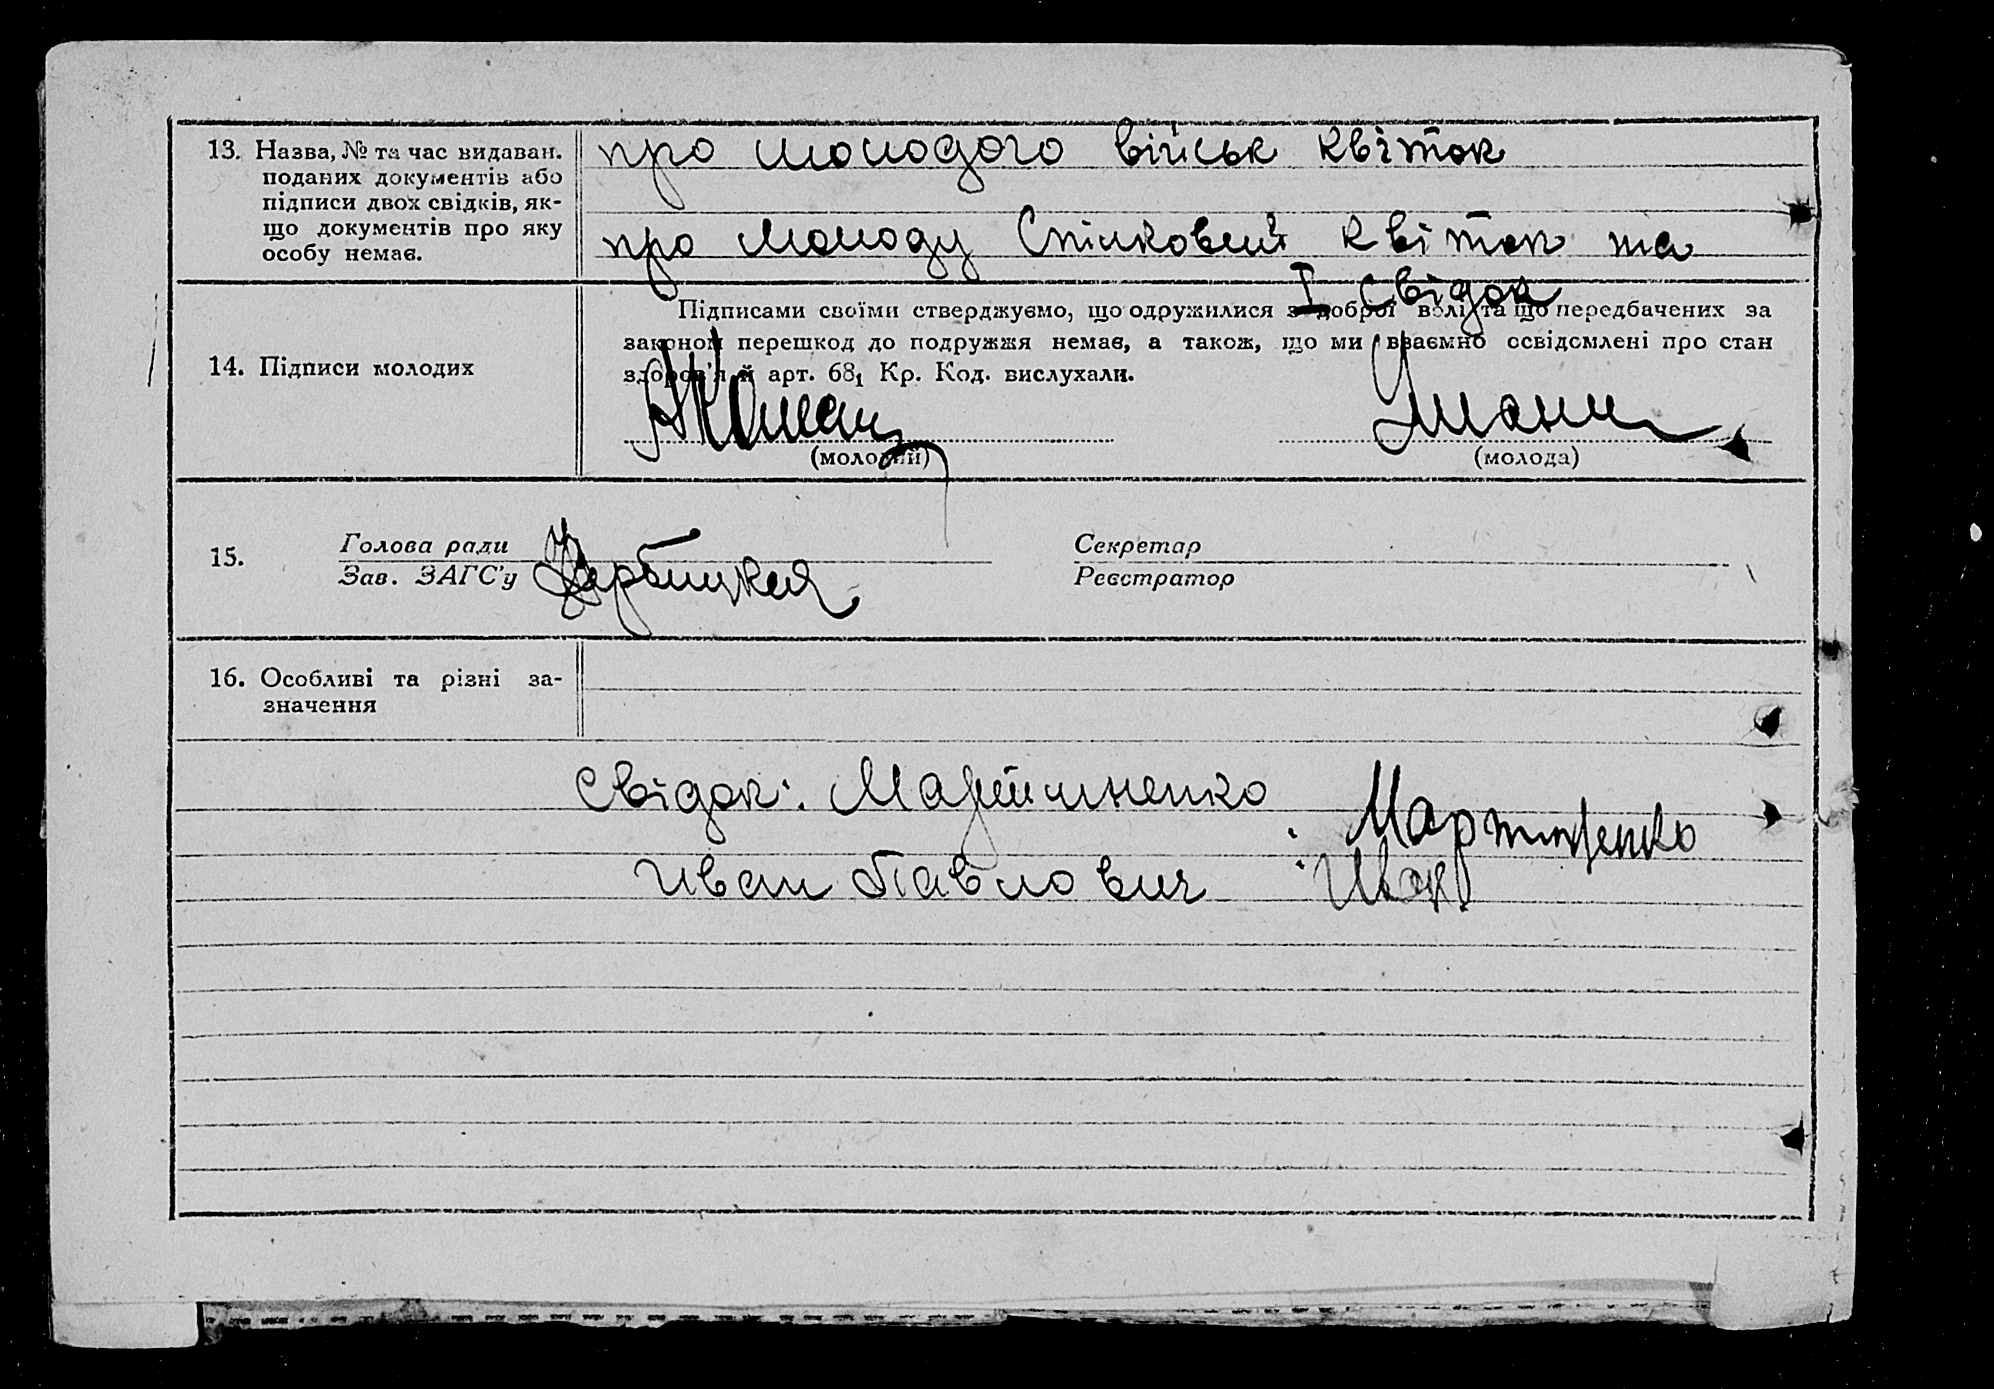 13. Назва, № та час видаван.
поданих документів або
підписи двох свідків, як-
що документів про яку
особу немає.
про молодого військ квіток
про молоду Спілковий квіток та
1 Свідок
14. Підписи молодих
Підписами своїми стверджуємо, що одружилися з доброї волі та що передбачених за
законом перешкод до подружжя немає, а також, що ми взаємно освідомлені про стан
здоров'я й арт. 68₁ Кр. Код. вислухали.
(молодий)
(молода)
15.
Голова ради
Зав. ЗАГС'у
Секретар
Реєстратор
16. Особливі та різні за-
значення
Свідок: Мартиненко
Иван Павлович
Мартиненко
Иван